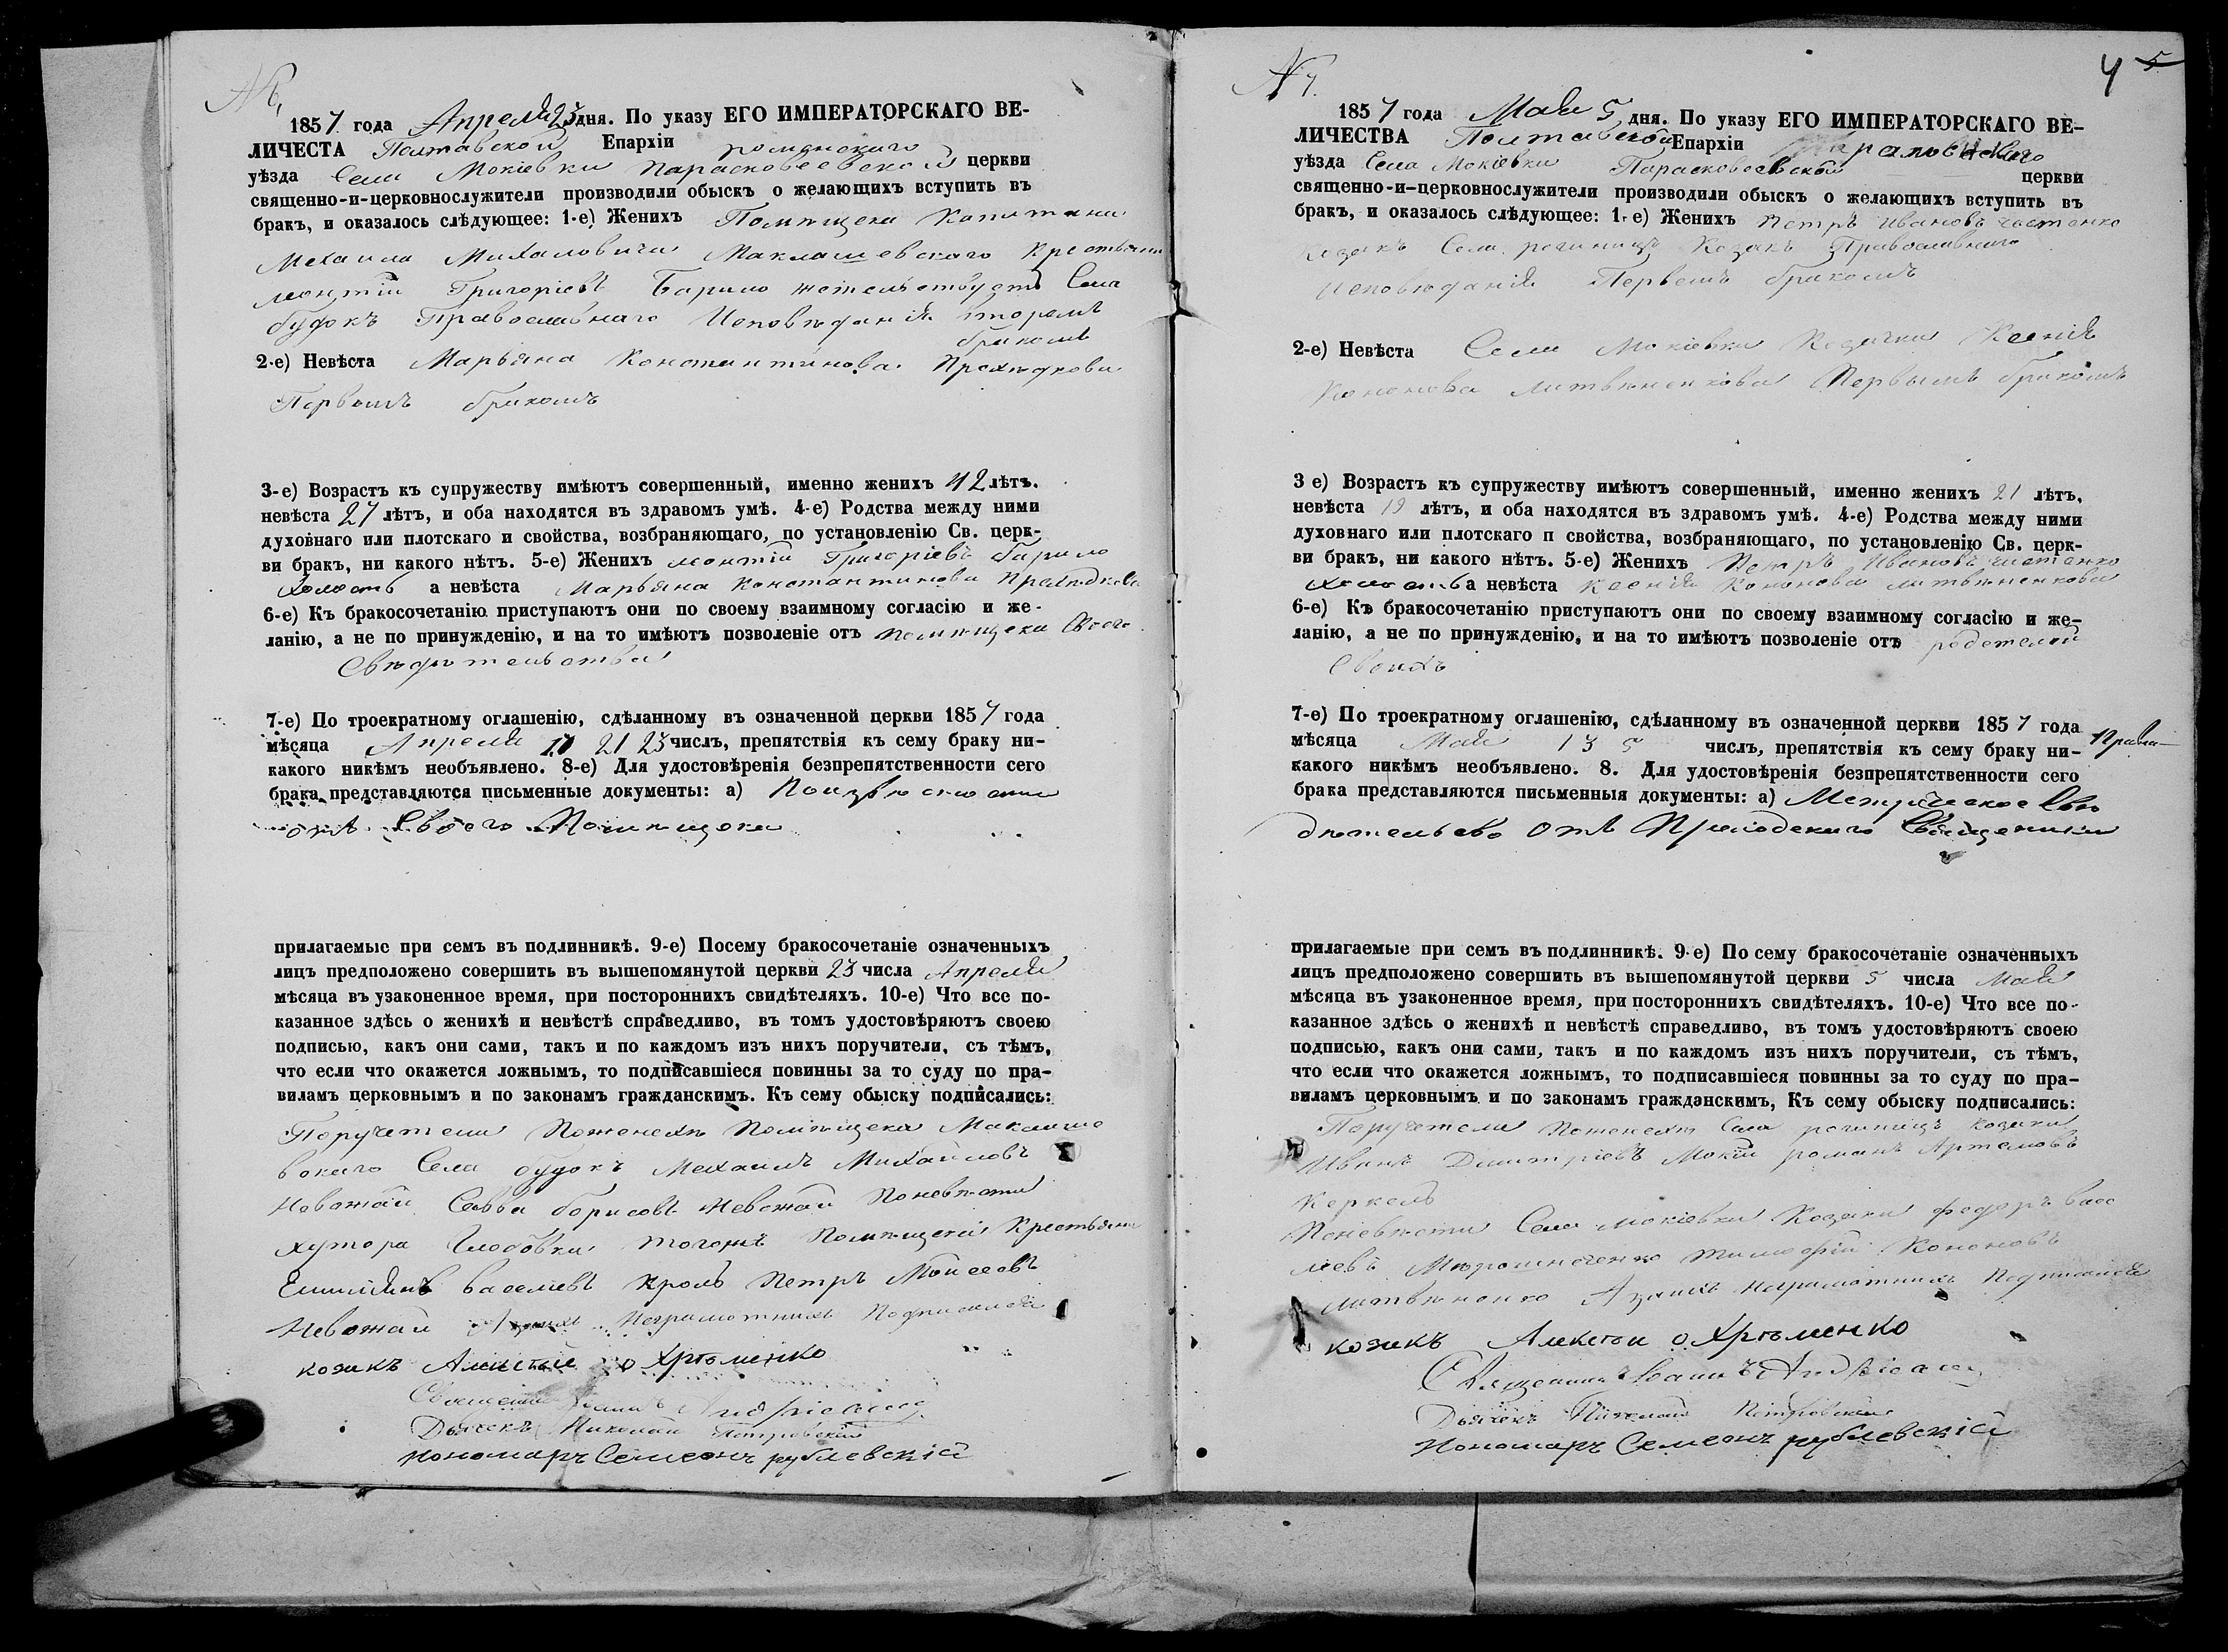 № 6,
1857 года Апреля 23 дня. По указу ЕГО ИМПЕРАТОРСКАГО ВЕ-
ЛИЧЕСТА Полтавской Епархіи роменскаго
уѣзда Села Мокіевки Парасковеевской церкви
священно-и-церковнослужители производили обыскъ о желающихъ вступить въ
бракъ, и оказалось слѣдующее: 1-е) Женихъ Помѣщека Капитана
Механла Михаловича Маклашевского Крестьянин
леонтій Григоріевъ Барило жетельствуетъ Села
будокъ Православнаго Исповѣданія вторемъ
бракомъ
2-е) Невѣста Марьяна Константинова Прахѣдкова
Первымъ бракомъ
3-е) Возрастъ къ супружеству имѣютъ совершенный, именно женихъ 42 лѣтъ.
невѣста 27 лѣтъ, и оба находятся въ здравомъ умѣ. 4-е) Родства между ними
духовнаго или плотскаго и свойства, возбраняющаго, по установленію Св. церк-
ви бракъ, ни какого нѣтъ. 5-е) Женихъ леонтій Григоріевъ барило
Холостъ а невѣста Марьяна Константинова Прахѣдкова
6-е) Къ бракосочетанію приступаютъ они по своему взаимному согласію и же-
ланію, а не по принужденію, и на то имѣютъ позволеніе отъ помѣщека Своего
Свѣдетельства
7-е) По троекратному оглашенію, сдѣланному въ означенной церкви 1857 года
мѣсяца Апреля 21 23 числъ, препятствія къ сему браку ни-
какого никѣмъ необъявлено. 8-е) Для удостовѣренія безпрепятственности сего
брака представляются письменные документы: а)
отъ Своего Помѣщека
прилагаемые при семъ въ подлинникѣ. 9-е) Посему бракосочетаніе означенныхъ
лицъ предположено совершить въ вышепомянутой церкви 23 числа Апреля
мѣсяца въ узаконенное время, при постороннихъ свидѣтеляхъ. 10-е) Что все по-
казанное здѣсь о женихѣ и невѣстѣ справедливо, въ томъ удостовѣряютъ своею
подписью, какъ они сами, такъ и по каждомъ изъ нихъ поручители, съ тѣмъ,
что если что окажется ложнымъ, то подписавшіеся повинны за то суду по пра-
виламъ церковнымъ и по законамъ гражданскимъ. Къ сему обыску подписались:
Поручетели Поженехѣ Помѣщека Маклаше
вского Села будокъ Механлъ Михайловъ
Невожай Савва борисовъ Невожай Поневѣсти
хутора тогожъ Помѣщека Крестьяни
Емиліянъ васелиевъ Кроль Петръ Моисеовъ
Невожай Азаихъ Неграмотнихъ Подписался
козакъ Алексѣи охрѣменко
Священникъ Іоаннъ Андріевскій
Дьячекъ Николай Петровскій
Пономаръ Семеонъ рублевскій
№ 7.
4 5
1857 года Мая 5 дня. По указу ЕГО ИМПЕРАТОРСКАГО ВЕ-
ЛИЧЕСТВА Полтавской Епархіи
уѣзда Села Мокіевки Парасковеевской церкви
священно-и-церковнослужители производили обыскъ о желающихъ вступить въ
бракъ, и оказалось слѣдующее: 1-е) Женихъ Петръ Ивановъ
козакъ Села рогинцъ Козакъ Православнаго
Исповѣданія Первемъ бракомъ
2-е) Невѣста Села Мокіевки Козачка Ксенія
Кононова литвѣненкова Первымъ бракомъ
3 е) Возрастъ къ супружеству имѣютъ совершенный, именно женихъ 21 лѣтъ,
невѣста 19 лѣтъ, и оба находятся въ здравомъ умѣ. 4-е) Родства между ними
духовнаго или плотскаго п свойства, возбраняющаго, по установленію Св. церк-
ви бракъ, ни какого нѣтъ. 5-е) Женихъ Петръ Ивановъ
холостъ а невѣста Ксенія Кононова литвѣненкова
6-е) Къ бракосочетанію приступаютъ они по своему взаимному согласію и же-
ланію, а не по принужденію, и на то имѣютъ позволеніе отъ родетелей
Своихъ
7-е) По троекратному оглашенію, сдѣланному въ означенной церкви 1857 года
мѣсяца Мая 1 3 5 числъ, препятствія къ сему браку ни-
какого никѣмъ необъявлено. 8. Для удостовѣренія безпрепятственности сего
брака представляются письменныя документы: а) Метрическое Свѣ
дѣтельсво отъ Приходскаго Священника
прилагаемые при семъ въ подлинникѣ. 9-е) По сему бракосочетаніе означенныхъ
лицъ предположено совершить въ вышепомянутой церкви 5 числа Мая
мѣсяца въ узаконенное время, при постороннихъ свидѣтеляхъ. 10-е) Что все по-
казанное здѣсь о женихѣ и невѣстѣ справедливо, въ томъ удостовѣряютъ своею
подписью, какъ они сами, такъ и по каждомъ изъ нихъ поручители, съ тѣмъ,
что если что окажется ложнымъ, то подписавшіеся повинны за то суду по пра-
виламъ церковнымъ и по законамъ гражданскимъ, Къ сему обыску подписались:
Поручетели Поженехѣ Села рогинцъ козаки
Иванъ Димитріевъ Мокій романъ Артемовъ
Керкель
Поневѣсти Села Мокіевки Козаки федоръ васе
лиевъ Мѣрошнѣченко тимофій Кононовъ
литвѣненко Азаихъ Неграмотнихъ Подписался
козакъ Алексѣи охрѣменко
Священникъ Іоаннъ Андріевскій
Дьячекъ Николай Петровскій
Пономаръ Семеонъ рублевскій